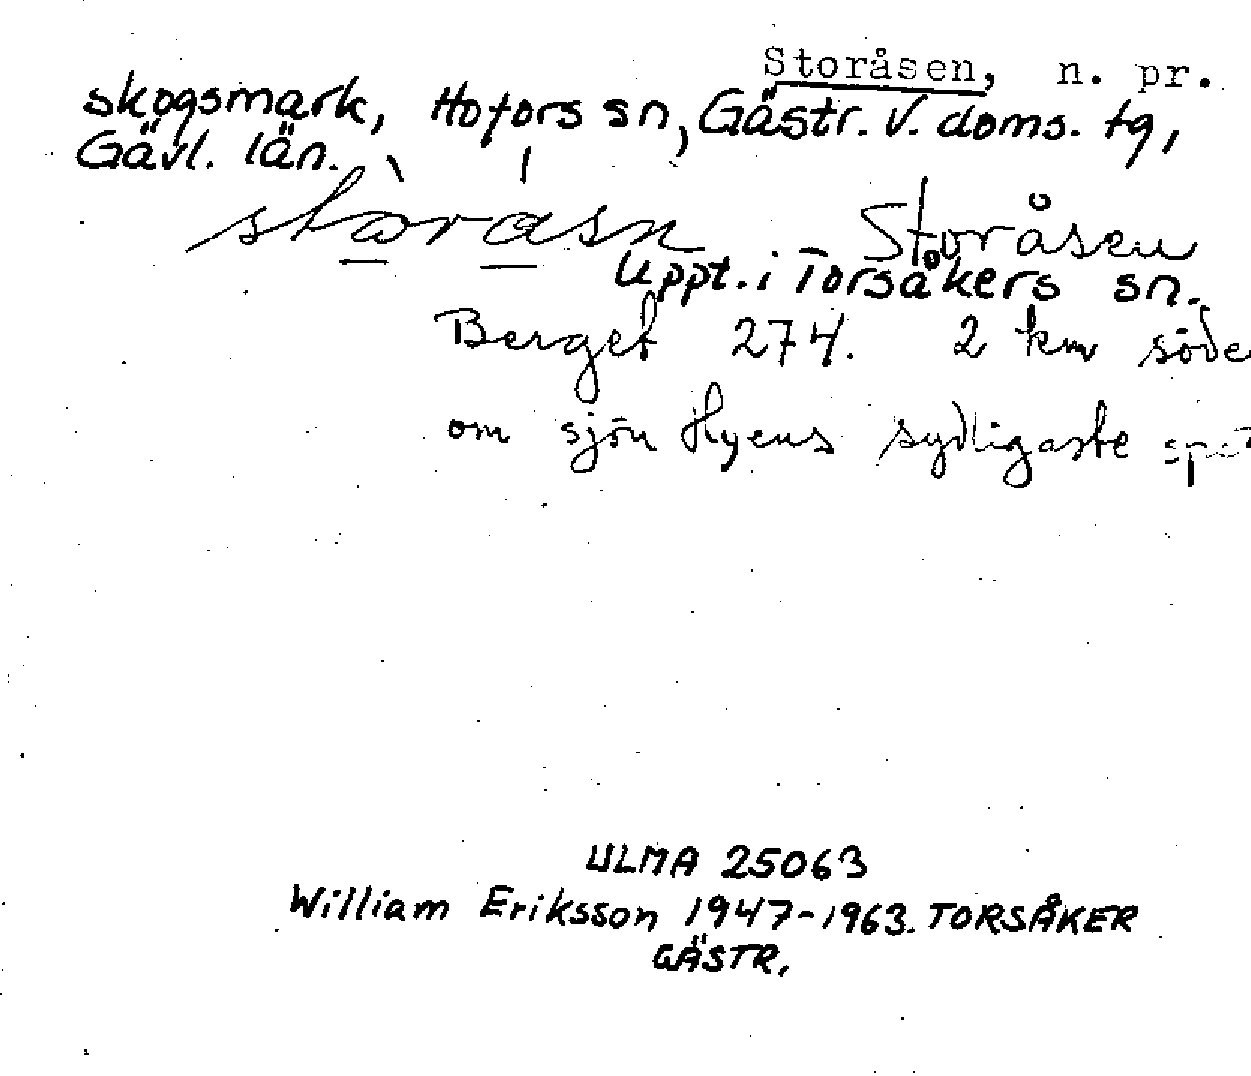 Storåsen, n. pr.
skogsmark, Hofors sn, Gästr. V. doms. tg,
Gävl. län.
stòrásn Storåsen
Uppt. i Torsåkers sn.
Berget 274. 2 km söde
om sjön Hyens sydligaste
ULMA 25063
William Eriksson 1947-1963. TORSÅKER
GÄSTR.